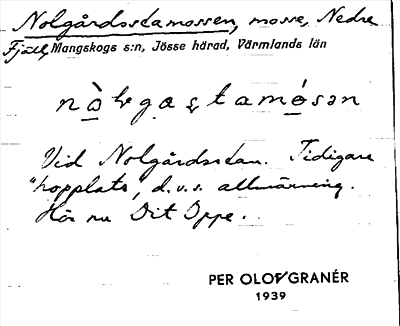 Nolgårdsstamossen, mosse, Nedre
Fjäll, Mangskogs s:n, Jösse härad, Värmlands län
Vid Nolgårdsstan. Tidigare
"hopplats", d.v.s. allmänning.
Hör nu Dit Oppe.
PER OLOV GRANÉR
1939